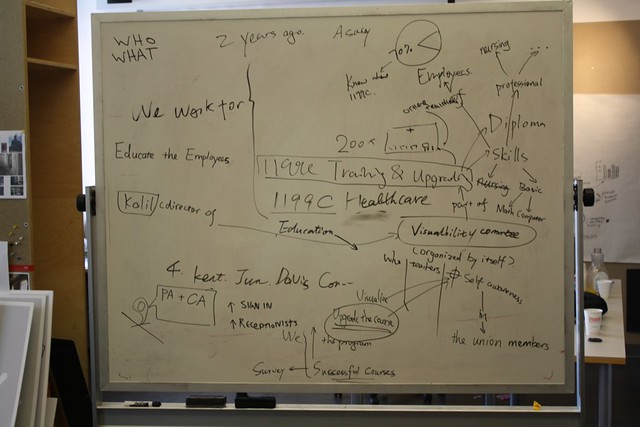 WHO
WHAT
2 years ago.
0%
Know
1199C.
Employees
nursing
...
professional
We work for
Diploma
Educate the Employees
Skills
200x
1199C Training & Upgrade
Nursing
Basic
Math
Computer
1199C Healthcare
Kalil
director of
part of
Education
Visualbility
(organized by itself?)
who
4. Kent. Jun. Davis Con--
PA + CA
↑ SIGN IN
↑ Receptionists
Visualize
Self awareness
Upgrade the course
by
We
the program
the union members
Survey
Successful courses